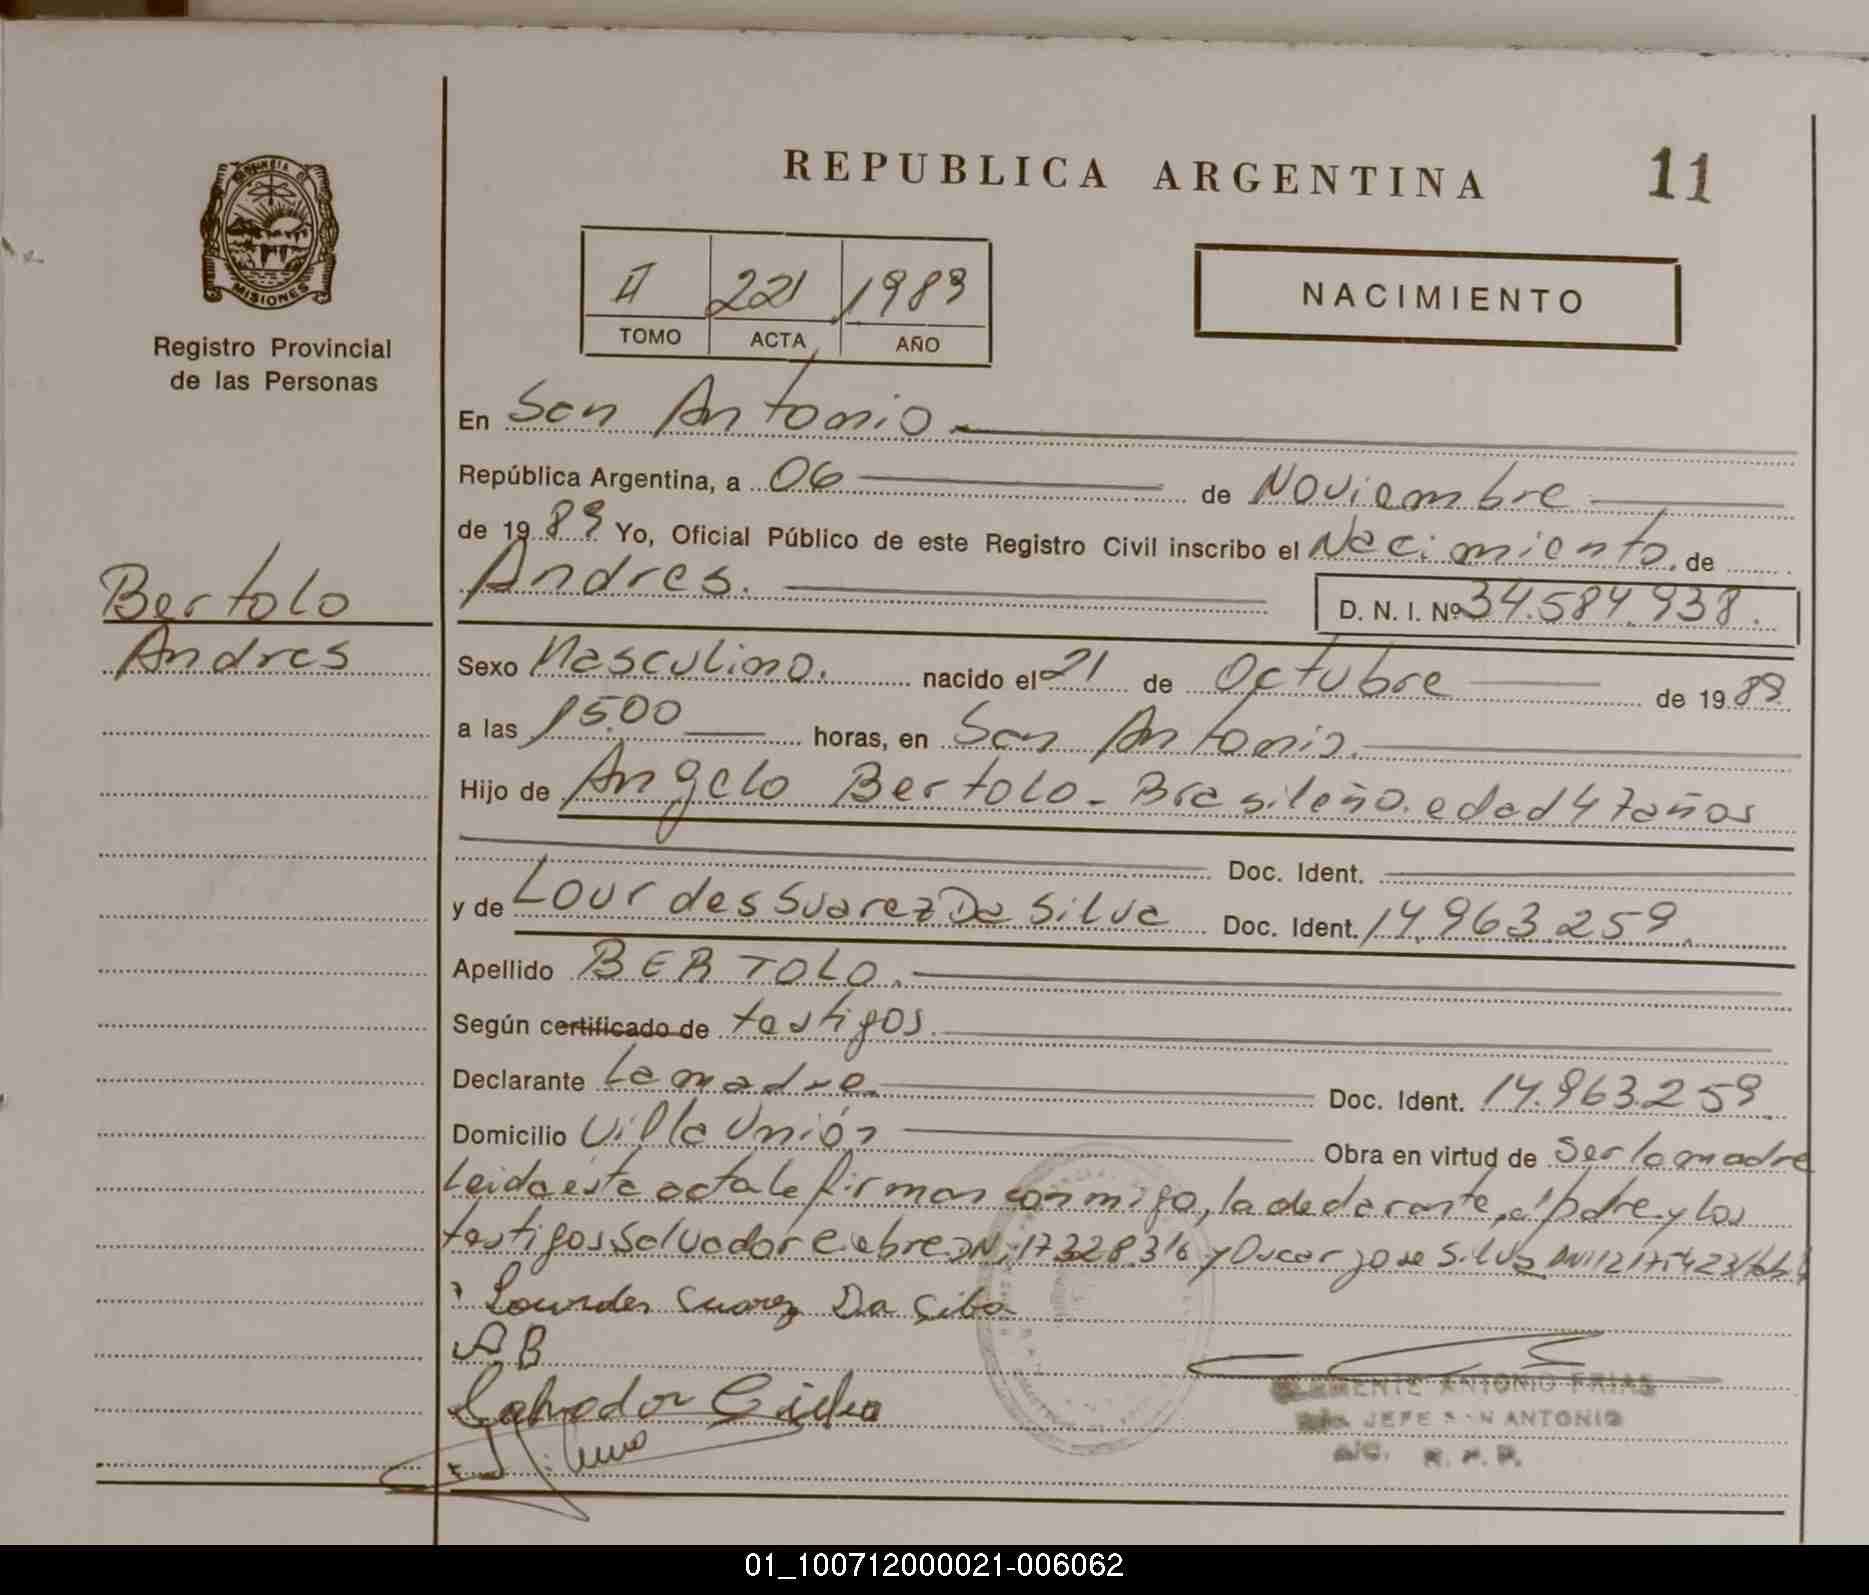 REPUBLICA ARGENTINA
11
PROVINCIA D
MISIONES
Registro Provincial
de las Personas
II 221 1989
TOMO ACTA AÑO
NACIMIENTO
En San Antonio
República Argentina, a 06 de Noviembre
de 1989 Yo, Oficial Público de este Registro Civil inscribo el Nacimiento. de
Andres.
D. N. I. Nº 34.584.938.
Bertolo
Andres
Sexo Masculino. nacido el 21 de Octubre de 1989
a las 15.00 horas, en San Antonio.
Hijo de Angelo Bertolo - Brasileño. edad 47 años
Doc. Ident.
y de Lourdes Suarez Da Silva Doc. Ident. 14.963.259.
Apellido BERTOLO.
Según certificado de testigos.
Declarante La madre. Doc. Ident. 14.963.259.
Domicilio Villa Unión Obra en virtud de ser la madre
Leida esta acta la firman conmigo, la declarante, el padre y los
testigos Salvador DNi: 17.328.316 y Oscar Jose Silva
Lourdes Suarez Da Silva
AB
Salvador
CLEMENTE ANTONIO FRIAS
JEFE SAN ANTONIO
A/C. R. P. P.
01_100712000021-006062